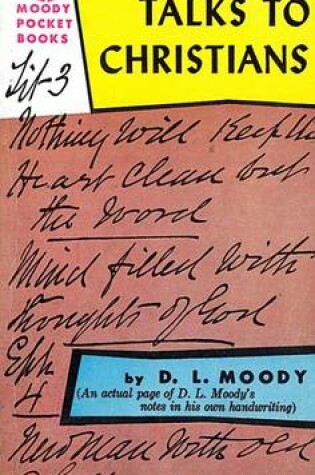 MOODY
POCKET
BOOKS
TALKS TO
CHRISTIANS
Tit-3
Nothing Will Keep the
Heart Clean but
the word
Mind filled with
thoughts of God
Eph
4
by D. L. MOODY
(An actual page of D. L. Moody's
notes in his own handwriting)
New man with old